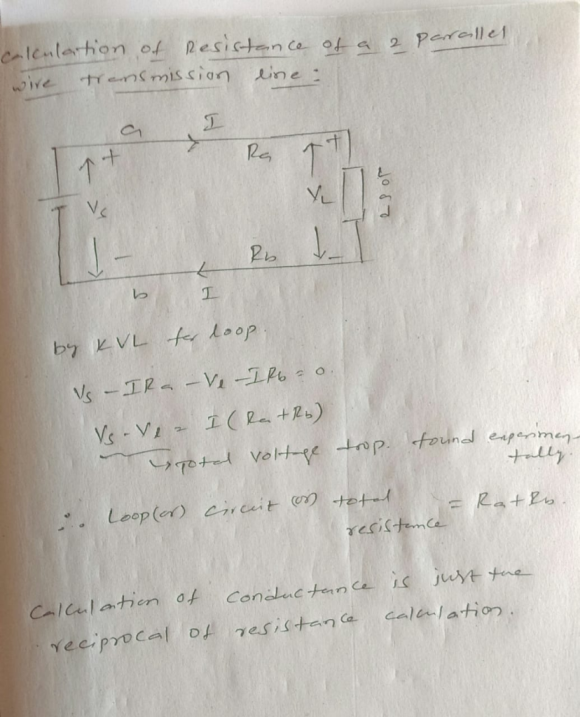 Calculation of Resistance of a 2 parallel
wire transmission line:
a I
+ Ra +
Vs VL Load
- Rb -
b I
by KVL for loop.
Vs - IRa - Vl - IRb = 0.
Vs - Vl = I(Ra + Rb)
↳ Total voltage drop. found experimen-
tally.
∴ Loop (or) circuit (or) total = Ra + Rb.
resistance
Calculation of conductance is just the
reciprocal of resistance calculation.